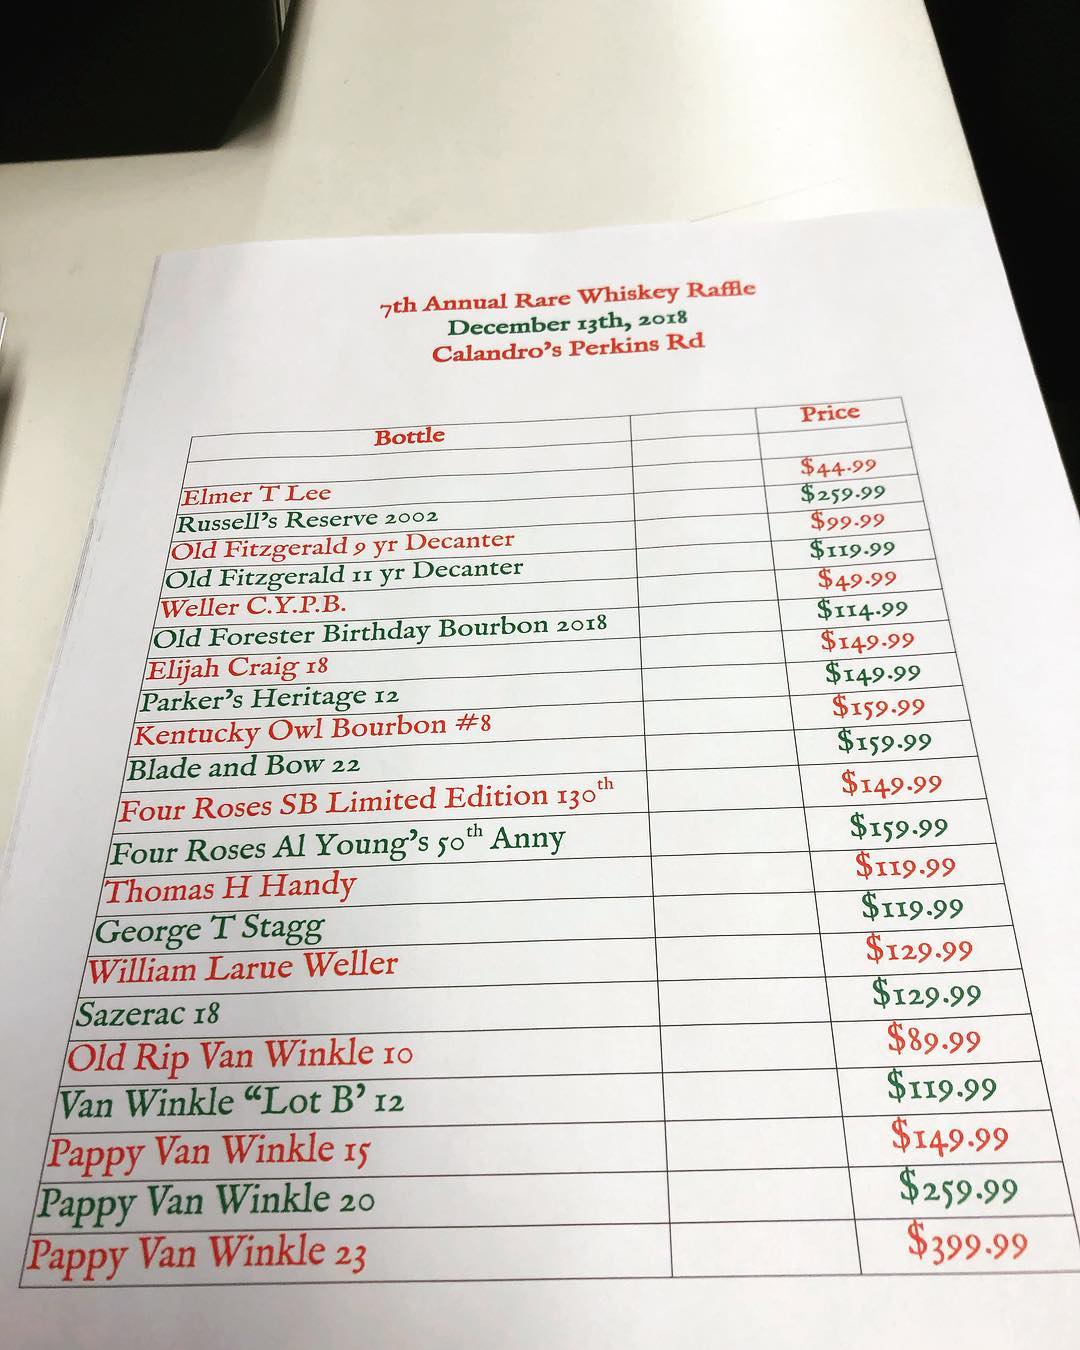 7th Annual Rare Whiskey Raffle
December 13th, 2018
Calandro's Perkins Rd
Bottle Price
Elmer T Lee $44.99
Russell's Reserve 2002 $259.99
Old Fitzgerald 9 yr Decanter $99.99
Old Fitzgerald 11 yr Decanter $119.99
Weller C.Y.P.B. $49.99
Old Forester Birthday Bourbon 2018 $114.99
Elijah Craig 18 $149.99
Parker's Heritage 12 $149.99
Kentucky Owl Bourbon #8 $159.99
Blade and Bow 22 $159.99
Four Roses SB Limited Edition 130th $149.99
Four Roses Al Young's 50th Anny $159.99
Thomas H Handy $119.99
George T Stagg $119.99
William Larue Weller $129.99
Sazerac 18 $129.99
Old Rip Van Winkle 10 $89.99
Van Winkle “Lot B’ 12 $119.99
Pappy Van Winkle 15 $149.99
Pappy Van Winkle 20 $259.99
Pappy Van Winkle 23 $399.99